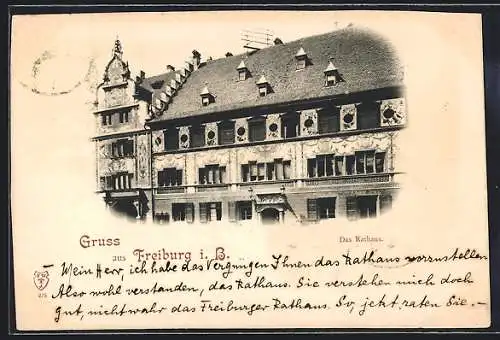 Gruss aus Freiburg i. B.
Das Rathaus.
– Mein Herr, ich habe das Vergnügen Ihnen das Rathaus vorzustellen
Also wohl verstanden, das Rathaus. Sie verstehen mich doch
gut, nicht wahr das Freiburger Rathaus. So, jetzt raten Sie. –